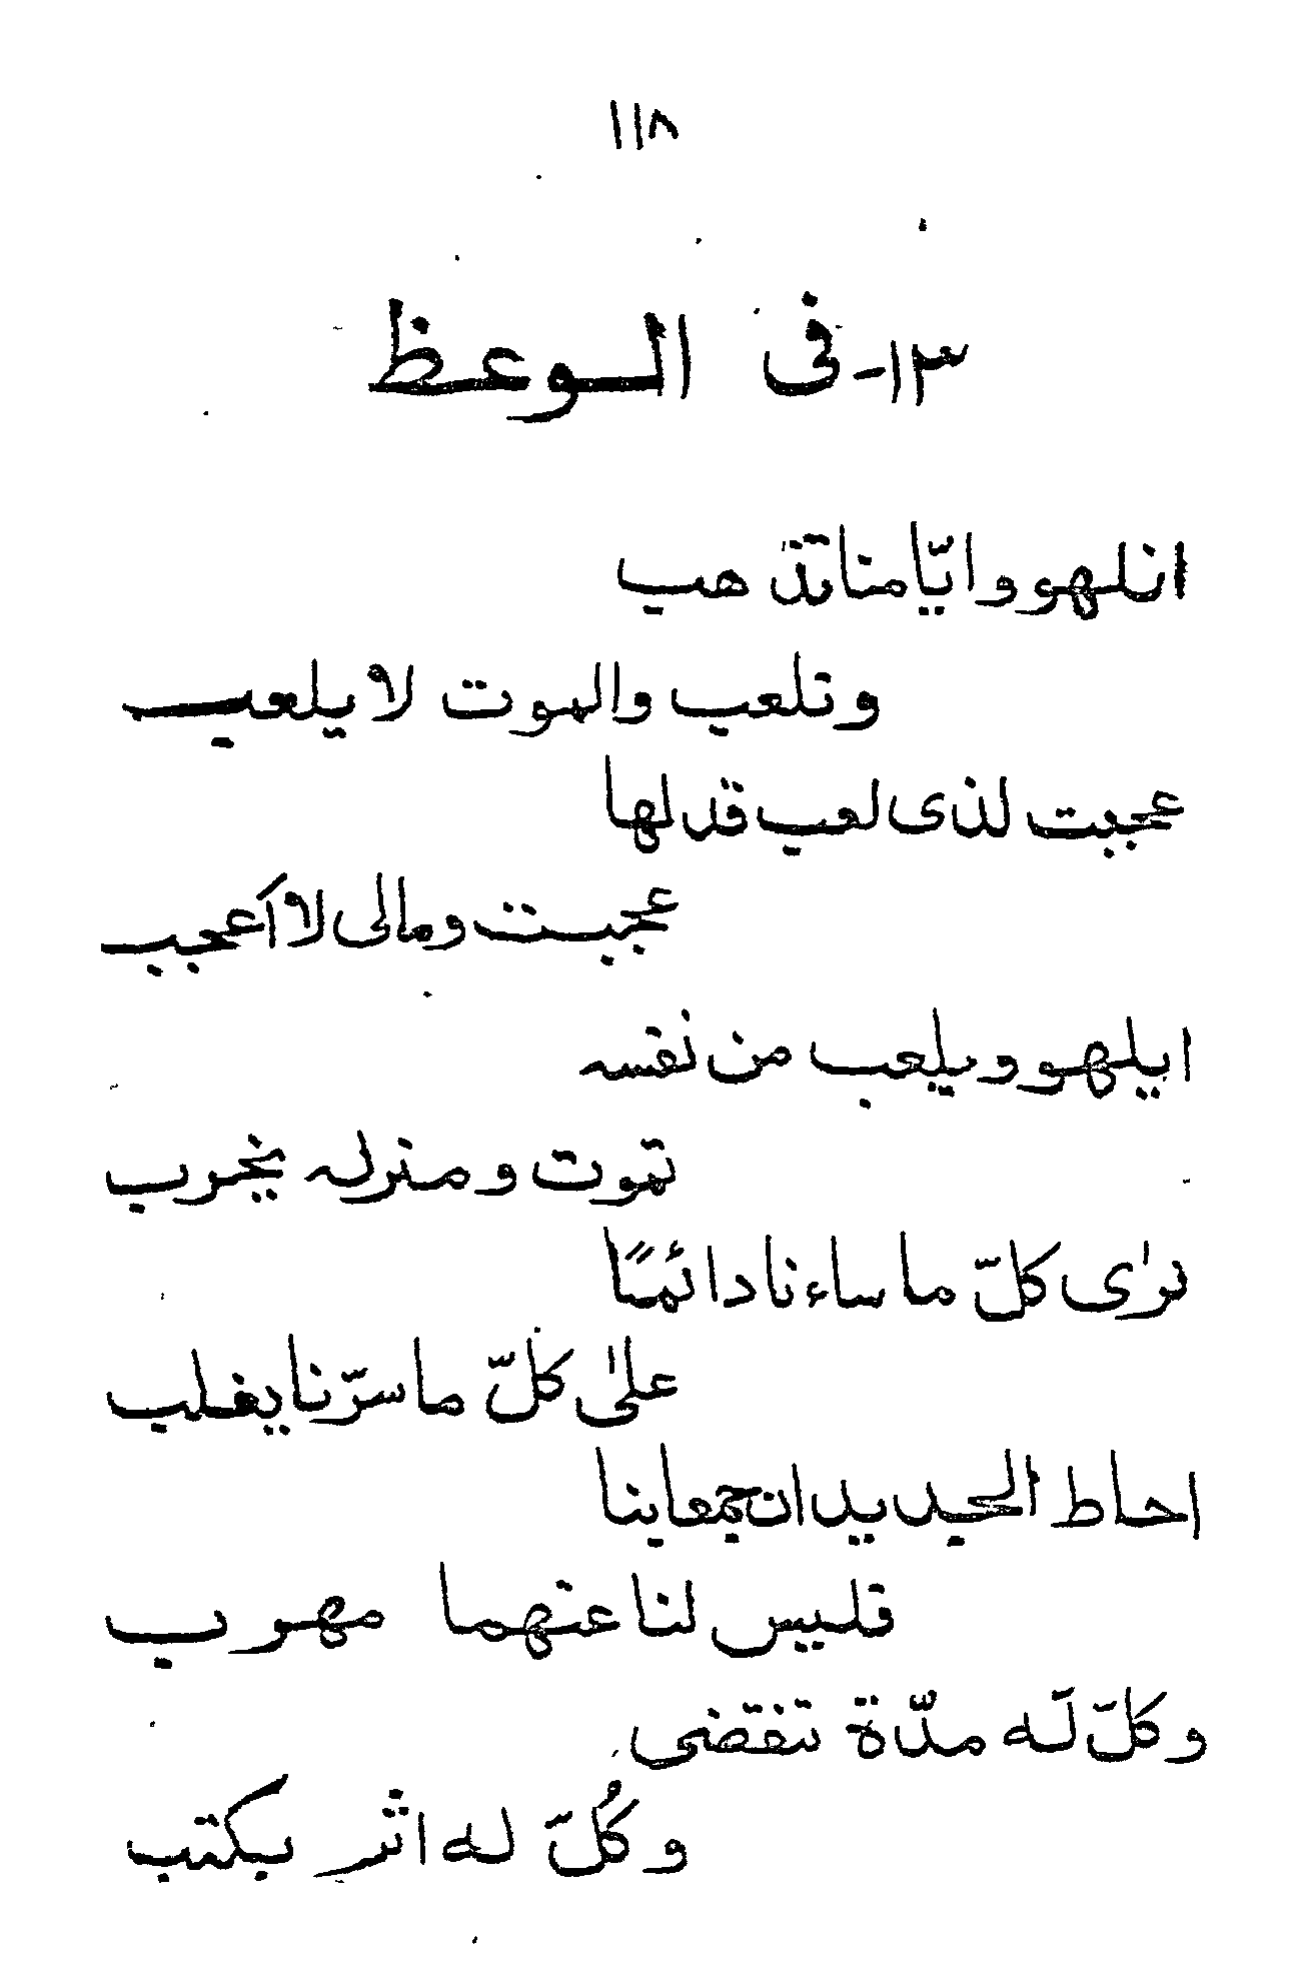 ١١٨
١٣- فى الوعظ
انلهو وايّامنا تذهب
وتلعب والموت لا يلعب
عجبت لذى لعب قد لها
عجبت ومالى لا أعجب
ايلهو ويلعب من نفسه
تموت ومنزله يخرب
نرٰى كلّ ما ساءنا دائمًا
علىٰ كلّ ما سرّنا يغلب
احاط الجديدان جمعا بنا
فليس لنا عنهما مهرب
وكلّ له مدّة تنقضى
وكُلّ له اثر يكتب